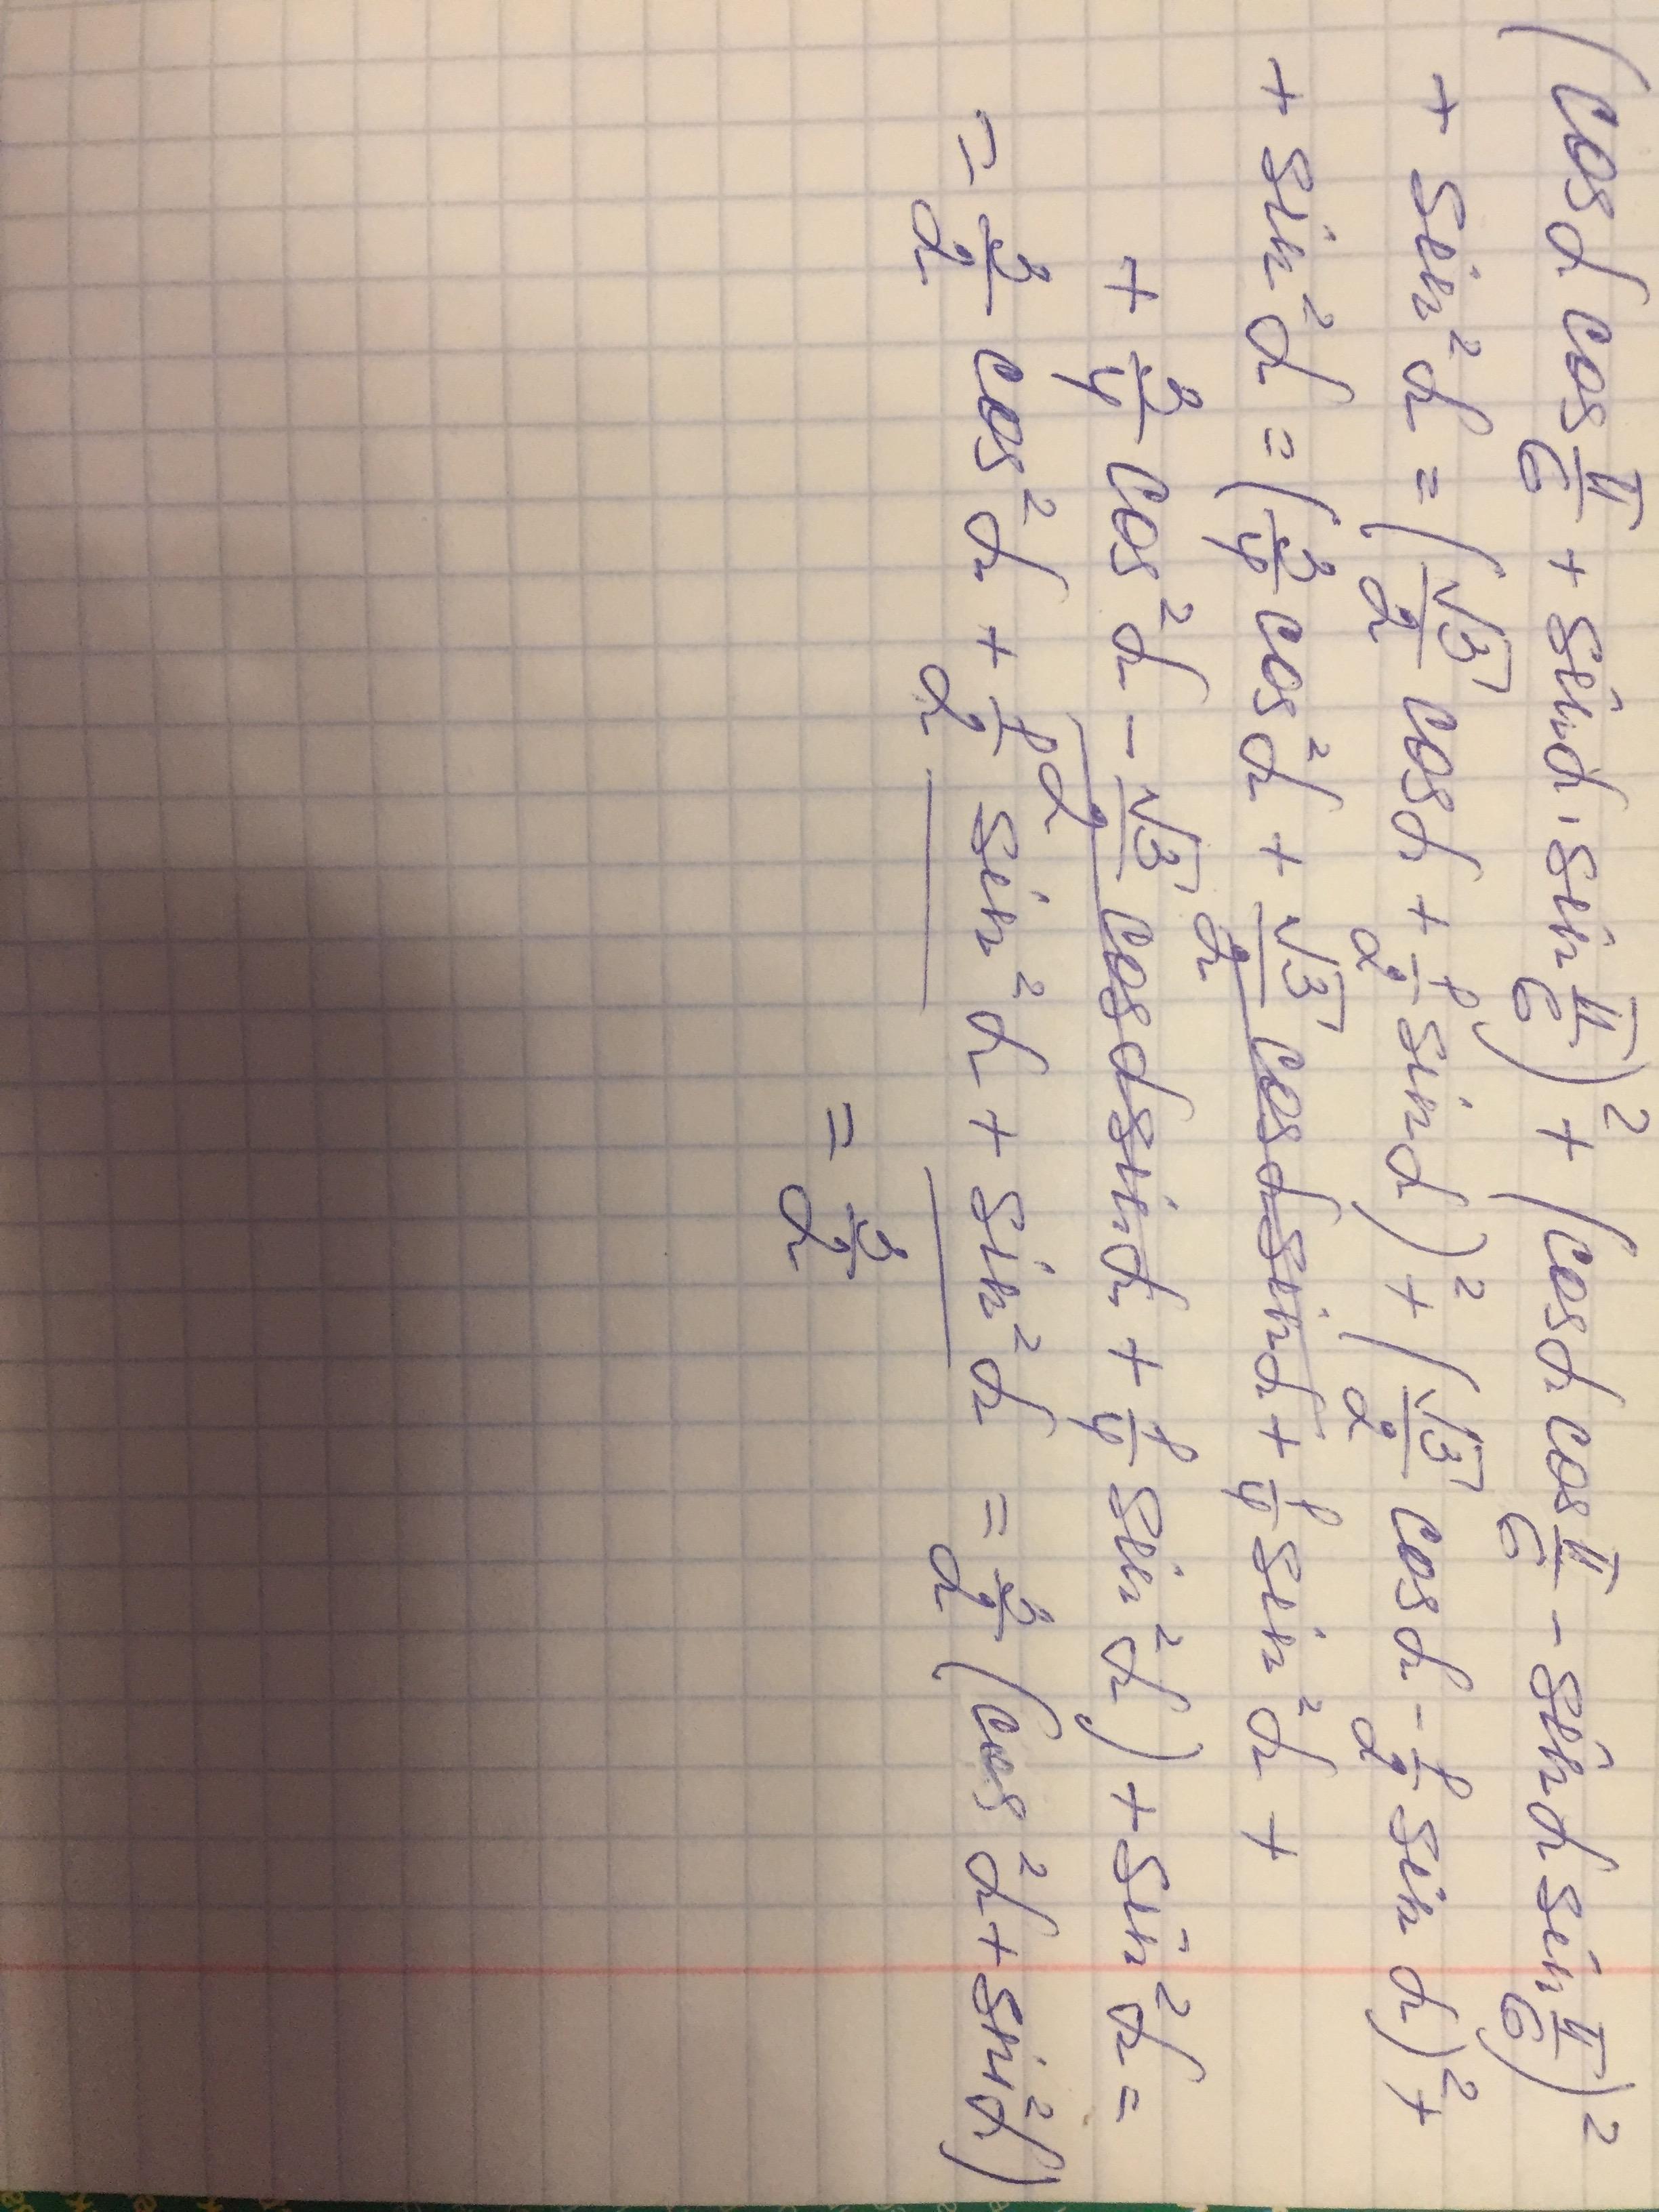 (cosα cos π/6 + sinα · sin π/6)² + (cosα cos π/6 − sinα sin π/6)²
+ sin²α = (√3/2 cosα + 1/2 sinα)² + (√3/2 cosα − 1/2 sinα)² +
+ sin²α = (3/4 cos²α + √3/2 cosα sinα + 1/4 sin²α +
+ 3/4 cos²α − √3/2 cosα sinα + 1/4 sin²α) + sin²α =
= 3/2 cos²α + 1/2 sin²α + sin²α = 3/2 (cos²α + sin²α)
= 3/2